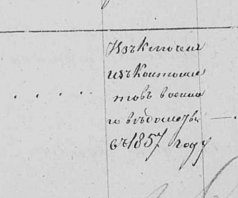 Изключенъ
изъ Кантонис
товъ военна
го вѣдомства
съ 1857 году